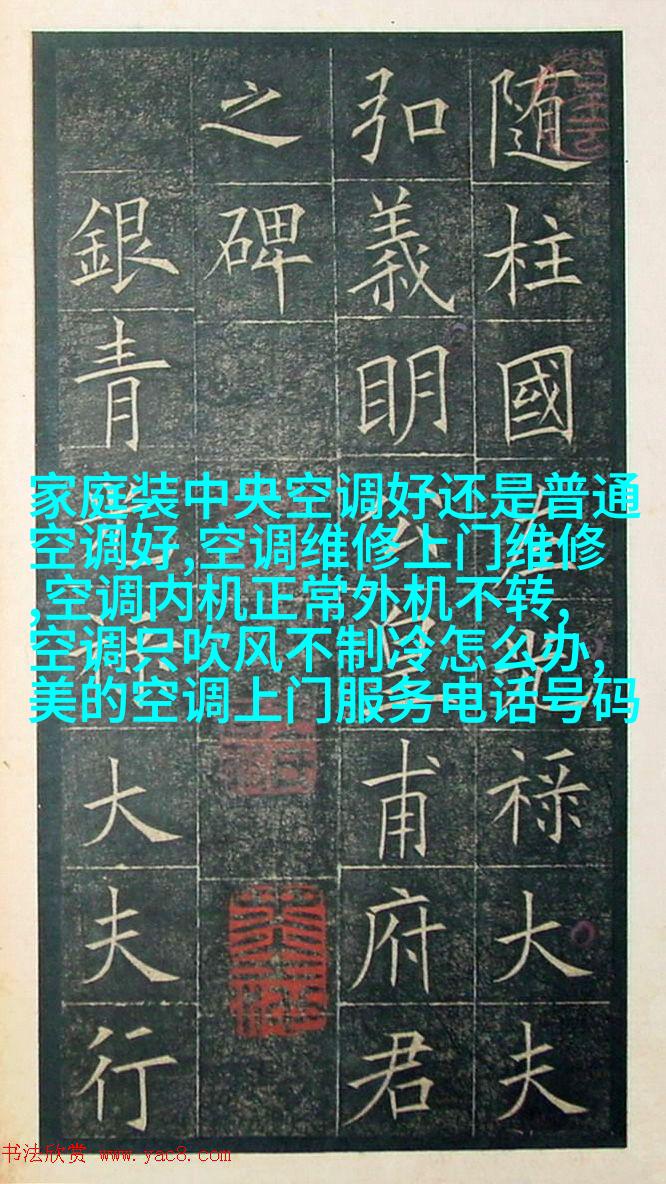 随柱國左光祿大夫
弘義明公皇甫府君
之碑
銀青大夫行
家庭装中央空调好还是普通
空调好,空调维修上门维修
,空调内机正常外机不转,
空调只吹风不制冷怎么办,
美的空调上门服务电话号码
书法欣赏 www.yac8.com